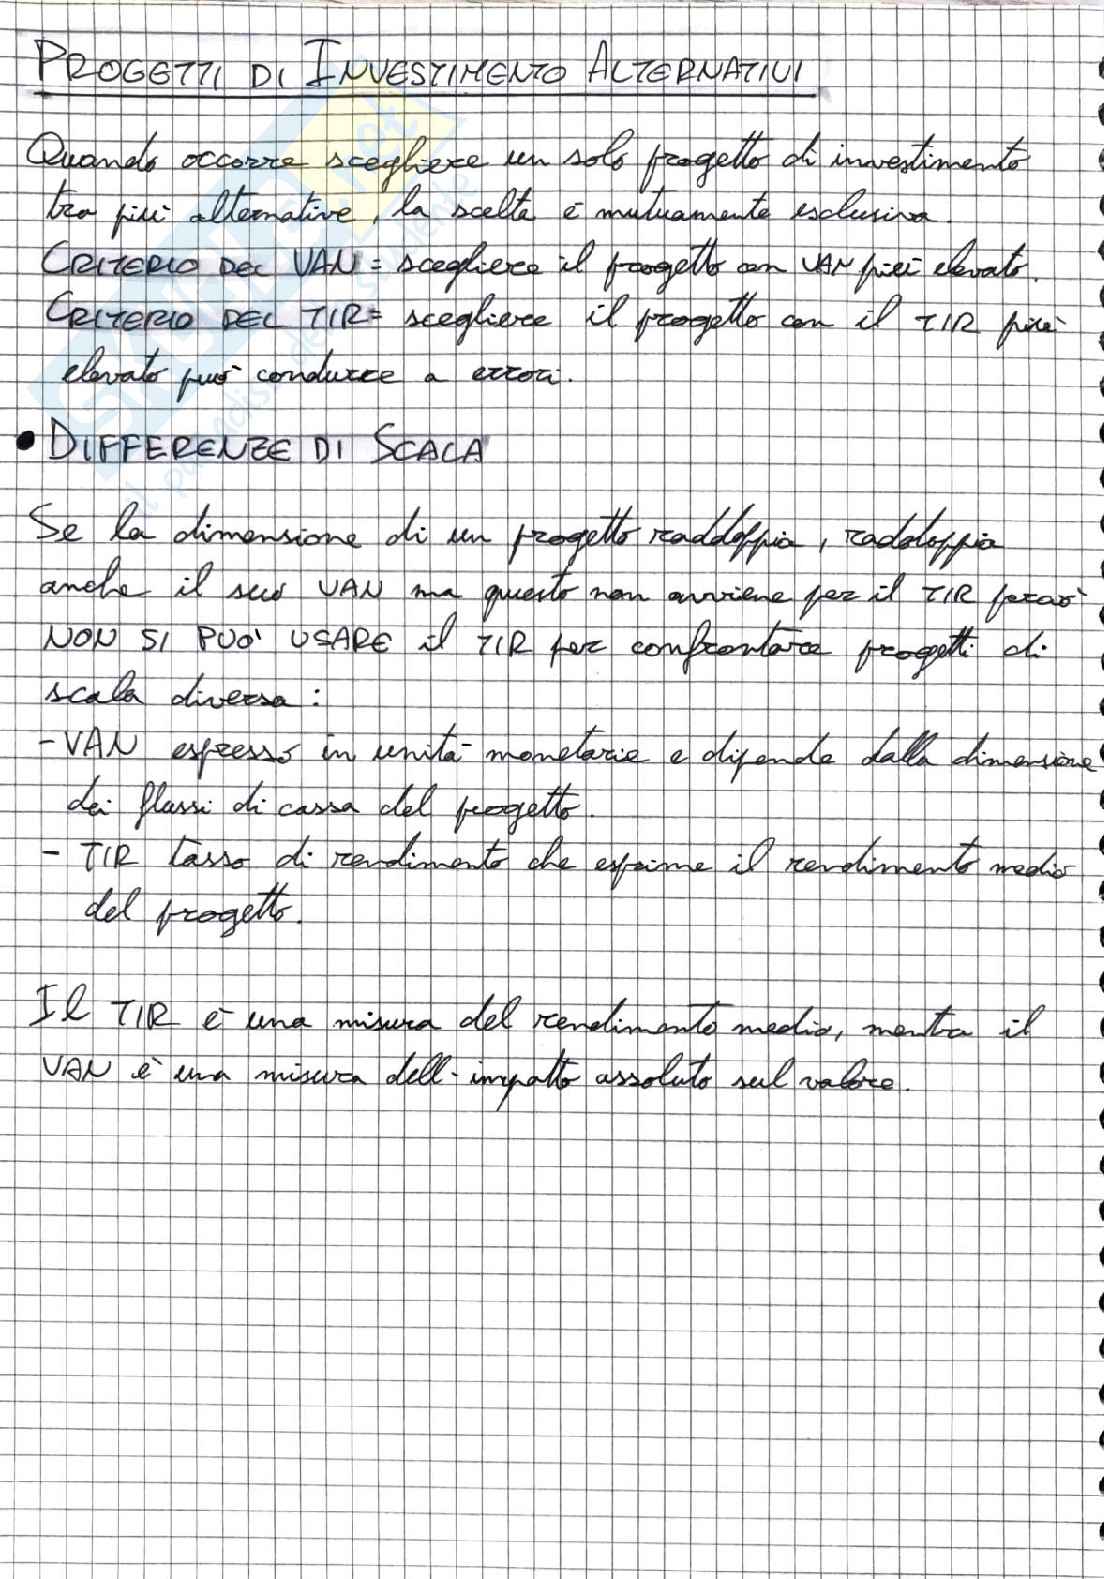 PROGETTI DI INVESTIMENTO ALTERNATIVI
Quando occorre scegliere un solo progetto di investimento
tra più alternative, la scelta è mutuamente esclusiva.
CRITERIO DEL VAN = scegliere il progetto con VAN più elevato.
CRITERIO DEL TIR = scegliere il progetto con il TIR più
elevato può condurre a errori.
• DIFFERENZE DI SCALA
Se la dimensione di un progetto raddoppia, raddoppia
anche il suo VAN ma questo non avviene per il TIR perciò
NON SI PUO' USARE il TIR per confrontare progetti di
scala diversa:
- VAN espresso in unità monetarie e dipende dalla dimensione
dei flussi di cassa del progetto.
- TIR tasso di rendimento che esprime il rendimento medio
del progetto.
Il TIR è una misura del rendimento medio, mentre il
VAN è una misura dell'impatto assoluto sul valore.